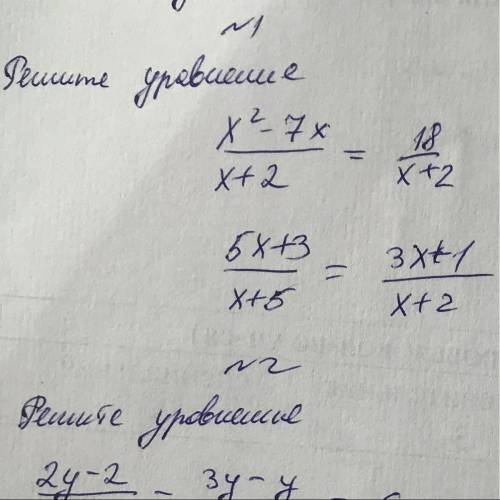 №1
Решите уравнение
x² - 7x / x+2 = 18 / x+2
5x+3 / x+5 = 3x+1 / x+2
№2
Решите уравнение
2y-2 = 3y-y =